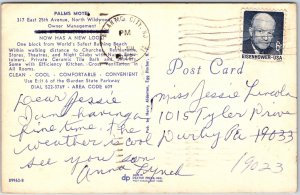 PALMS MOTEL
317 East 25th Avenue, North Wildwood
Owner Management
NOW HAS A NEW LOOK
One block from World's Safest Bathing Beach
Within walking distance to Churches,
Stores, Theatres, and Night Clubs with
Towers. Private Ceramic Tile Bath and
Some with Efficiency Kitchen.
CLEAN - COOL - COMFORTABLE - CONVENIENT
Use Exit 6 of the Garden State Parkway
DIAL 522- AREA CODE 609
PM
EISENHOWER·USA
Post Card
Dear Jessie
Am having a
fine time. the
weather is cool
see you son
Anna Lynch
Miss Jessie Lincoln
1015 Tyler Prove
Darby Pa 19033
19023
dp